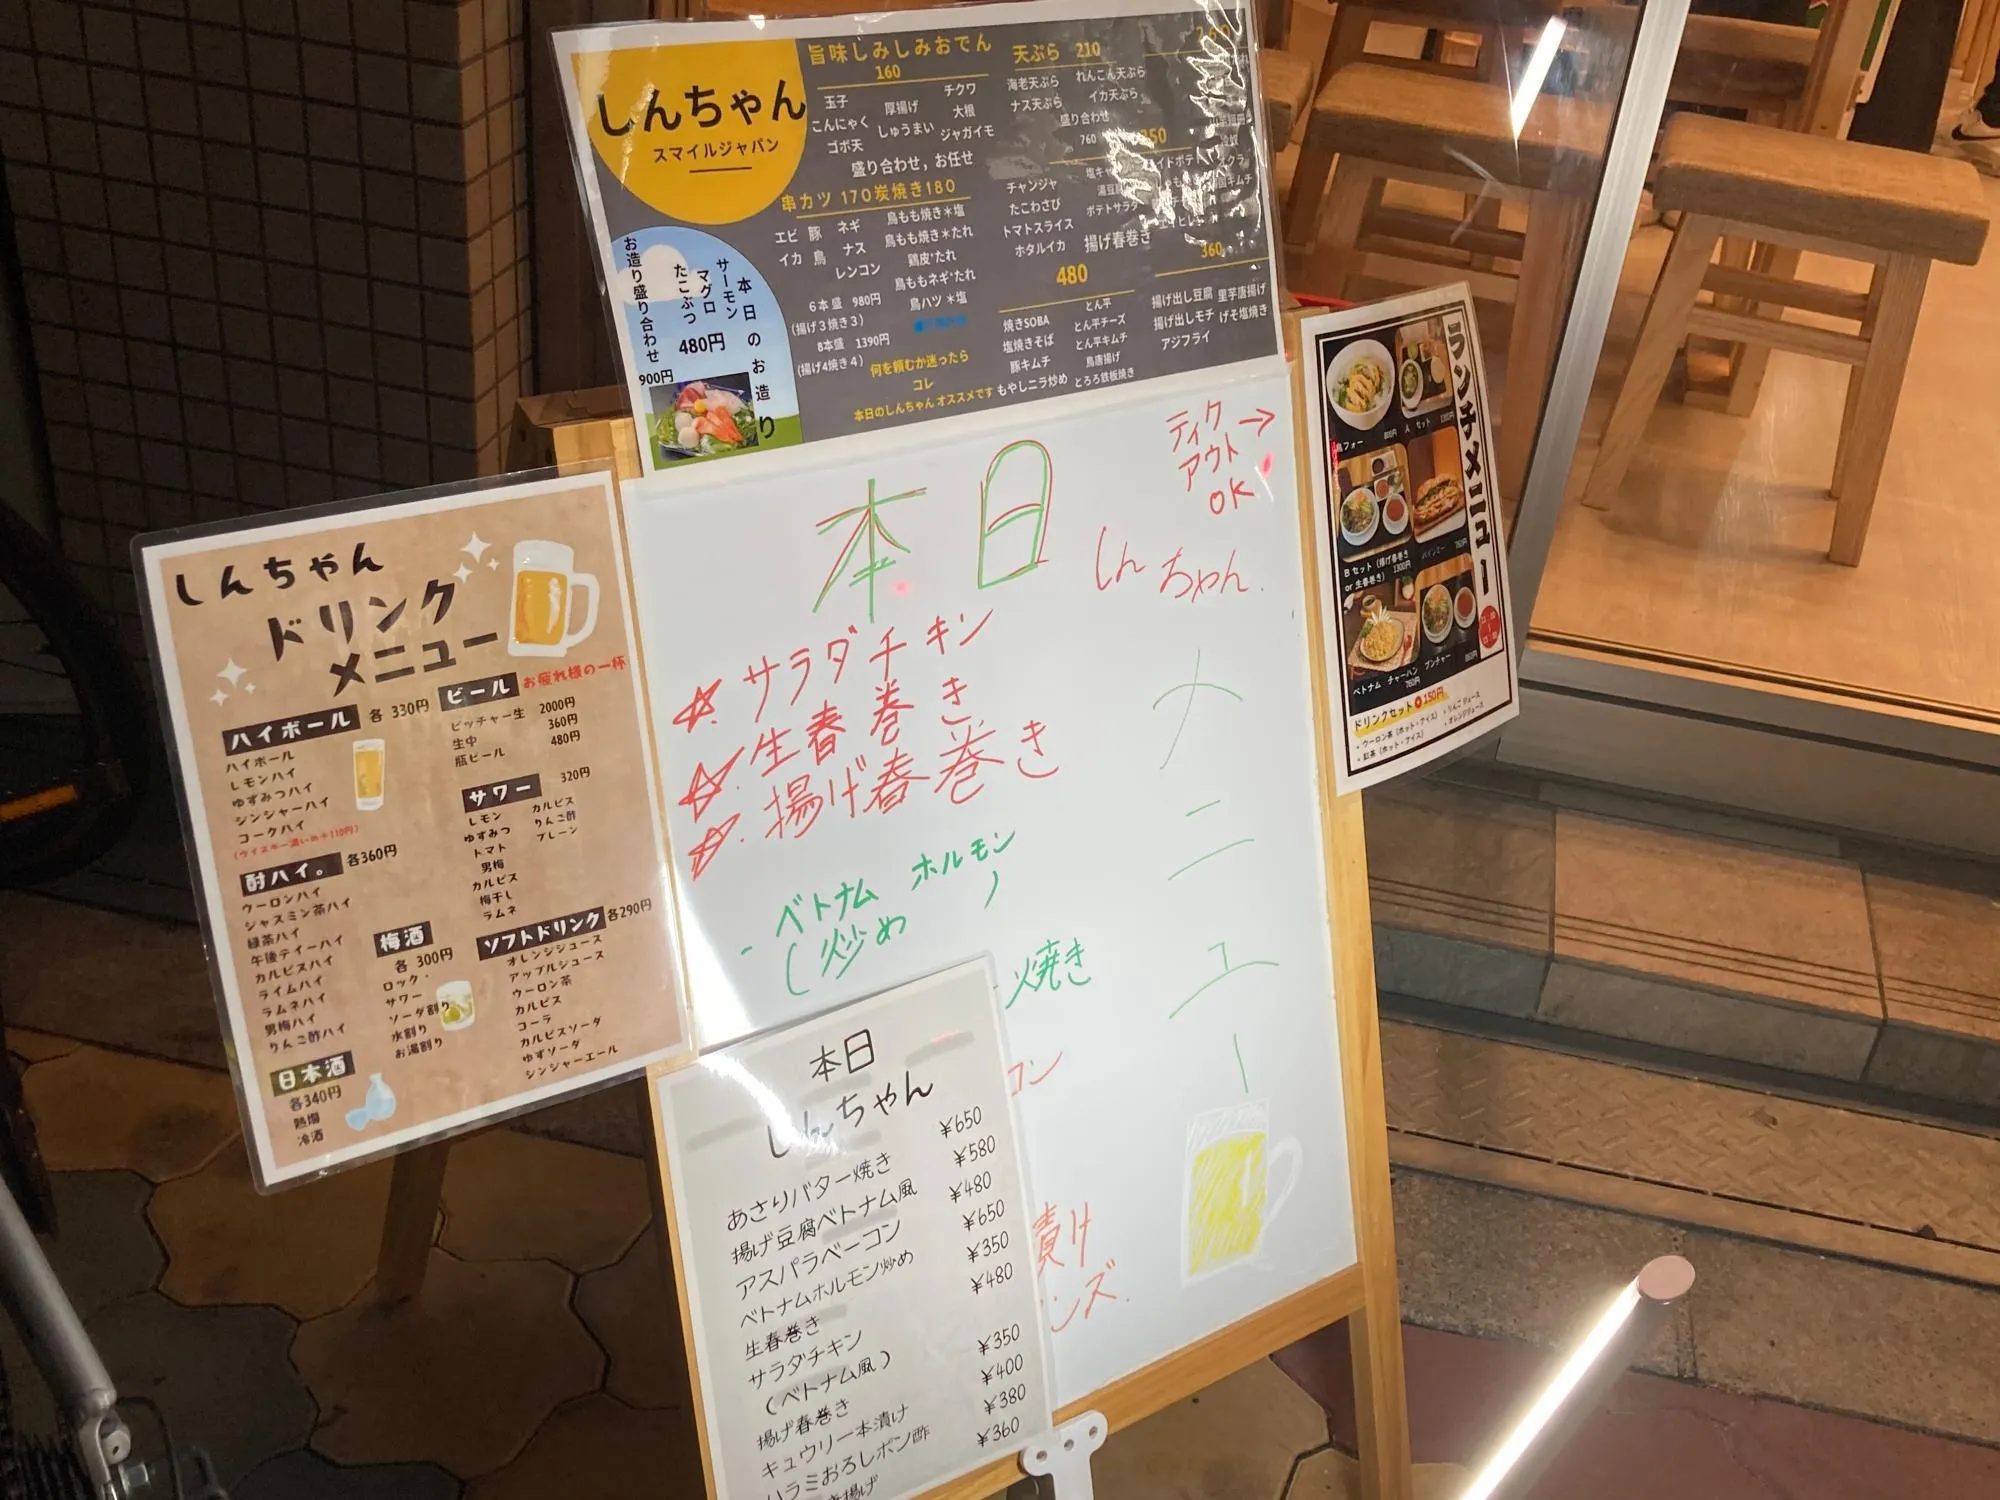 しんちゃん
スマイルジャパン
旨味しみしみおでん
160
玉子 厚揚げ チクワ
こんにゃく しゅうまい 大根
ゴボ天 ジャガイモ
盛り合わせ，お任せ
串カツ 170 炭焼き180
エビ 豚 ネギ 鳥もも焼き＊塩
イカ 鳥 ナス 鳥もも焼き＊たれ
レンコン 鶏皮*たれ
鳥ももネギ*たれ
鳥ハツ ＊塩
6本盛 980円
(揚げ3焼き3)
8本盛 1390円
(揚げ4焼き4)
何を頼むか迷ったら
コレ
本日のしんちゃん オススメです
本日のお造り
サーモン
マグロ
たこぶつ
480円
お造り盛り合わせ
900円
天ぷら 210
海老天ぷら れんこん天ぷら
ナス天ぷら イカ天ぷら
盛り合わせ
760
チャンジャ
たこわさび
トマトスライス
ホタルイカ
ポテトサラダ
揚げ春巻き
480
とん平
焼きSOBA とん平チーズ
塩焼きそば とん平キムチ
豚キムチ 鳥唐揚げ
もやしニラ炒め とろろ鉄板焼き
360
揚げ出し豆腐 里芋唐揚げ
揚げ出しモチ げそ塩焼き
アジフライ
しんちゃん
ドリンク
メニュー
ハイボール 各 330円
ハイボール
レモンハイ
ゆずみつハイ
ジンジャーハイ
コークハイ
(ウイスキー濃いめ＋110円)
酎ハイ。 各360円
ウーロンハイ
ジャスミン茶ハイ
緑茶ハイ
午後ティーハイ
カルピスハイ
ライムハイ
ラムネハイ
男梅ハイ
りんご酢ハイ
日本酒
各340円
熱燗
冷酒
ビール お疲れ様の一杯
ピッチャー生 2000円
生中 360円
瓶ビール 480円
サワー 320円
レモン カルピス
ゆずみつ りんご酢
トマト プレーン
男梅
カルピス
梅干し
ラムネ
梅酒
各 300円
ロック・
サワー
ソーダ割り
水割り
お湯割り
ソフトドリンク 各290円
オレンジジュース
アップルジュース
ウーロン茶
カルピス
コーラ
カルピスソーダ
ゆずソーダ
ジンジャーエール
本日
しんちゃん
メニュー
ティク
アウト
OK
→
サラダチキン
生春巻き
揚げ春巻き
ベトナム ホルモン
(炒め)
焼き
コン
漬け
ンズ.
本日
しんちゃん
あさりバター焼き ¥650
揚げ豆腐ベトナム風 ¥580
アスパラベーコン ¥480
ベトナムホルモン炒め ¥650
生春巻き ¥350
サラダチキン ¥480
(ベトナム風)
揚げ春巻き ¥350
キュウリ一本漬け ¥400
ハラミおろしポン酢 ¥380
¥360
ランチメニュー
鳥フォー 800円
A セット 1300円
B セット (揚げ春巻き
or 生春巻き) 1300円
バインミー 750円
ベトナム チャーハン
760円
ブンチャー 860円
ドリンクセット 150円
• ウーロン茶 (ホット・アイス)
• 紅茶 (ホット・アイス)
• りんごジュース
• オレンジジュース